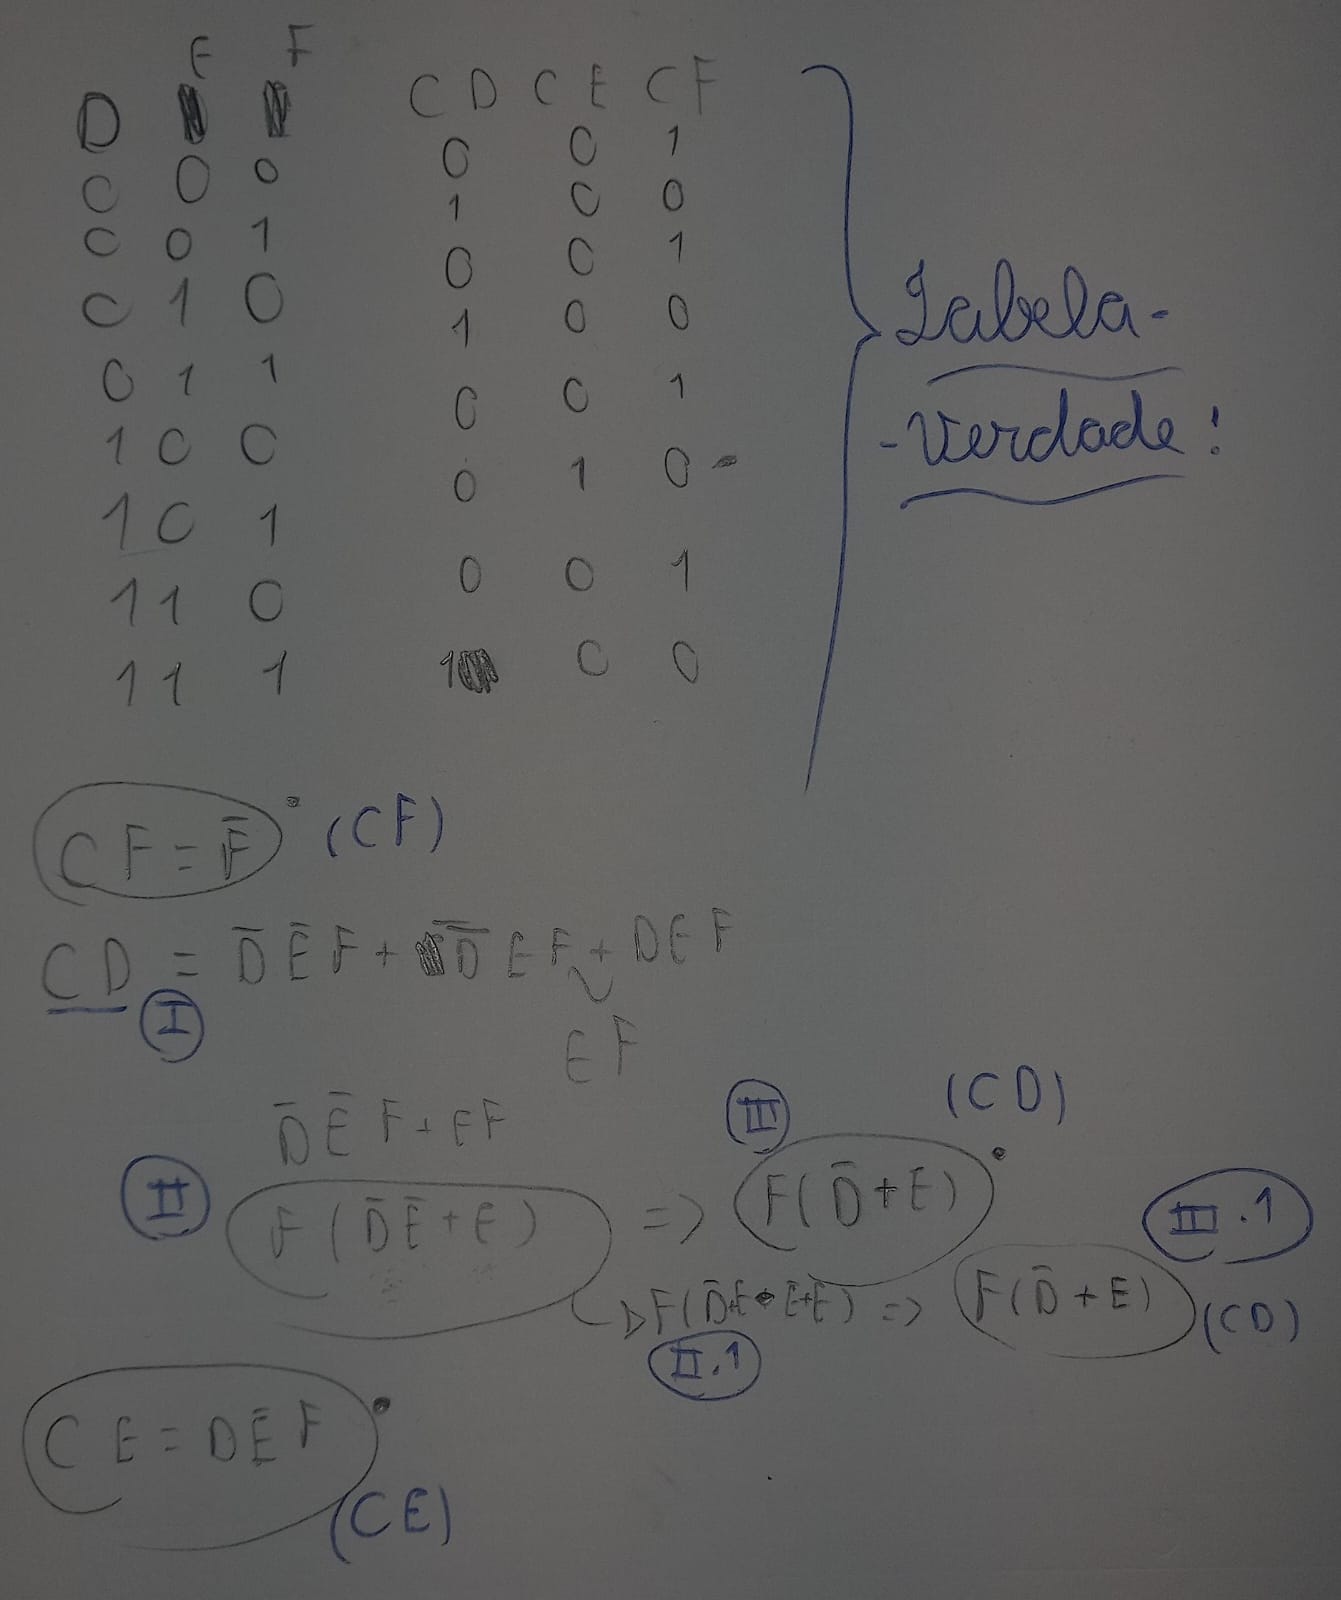 D E F CD CE CF
0 0 0 0 0 1
0 0 1 1 0 0
0 1 0 0 0 1
0 1 1 1 0 0
1 0 0 0 0 1
1 0 1 0 1 0
1 1 0 0 0 1
1 1 1 1 0 0
Tabela-
-Verdade!
CF = F̄ (CF)
CD = D̄ĒF + D̄EF + DEF
I
EF
D̄ĒF + EF
II F(D̄Ē+E) => III F(D̄+E) (CD)
II.1 => F(D̄+E) (CD) III.1
CE = DĒF
(CE)